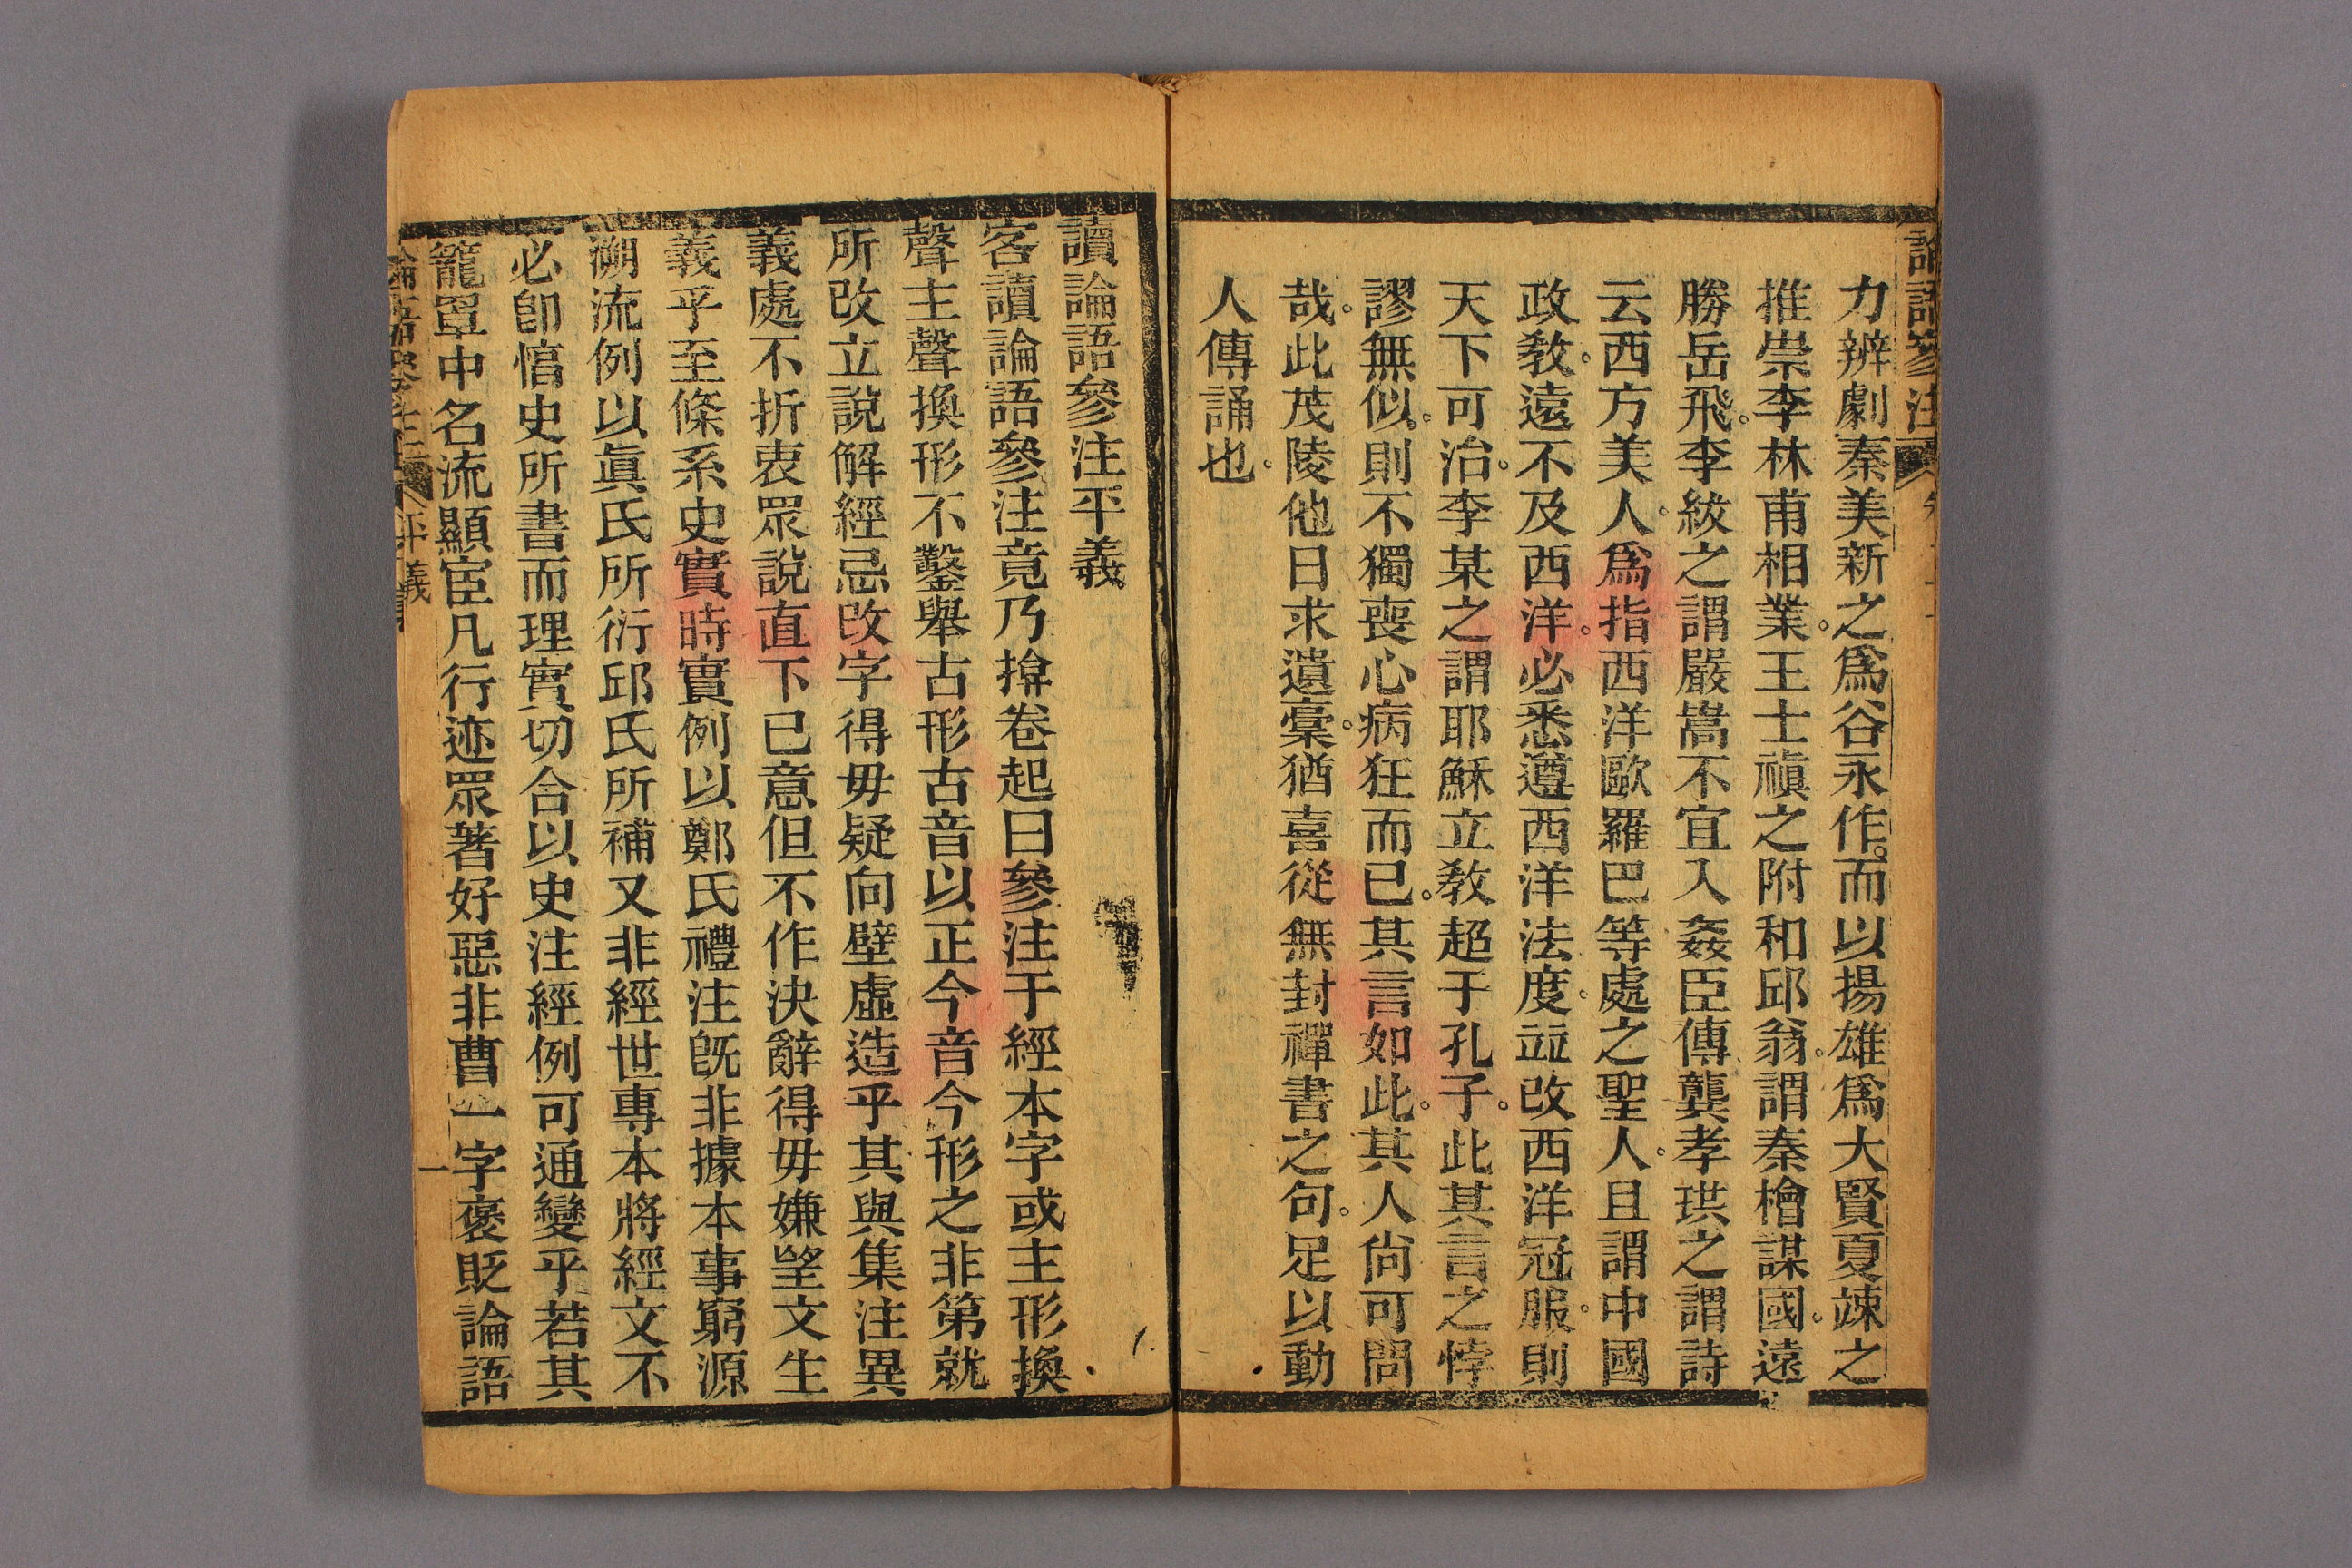 論語參注
力辨劇秦美新之爲谷永作。而以揚雄爲大賢夏竦之
推崇李林甫相業。王士禛之附和邱翁。謂秦檜謀國。遠
勝岳飛。李紱之謂嚴嵩不宜入姦臣傳龔孝珙之謂詩
云西方美人。爲指西洋歐羅巴等處之聖人。且謂中國
政敎。遠不及西洋。必悉遵西洋法度。竝改西洋冠服。則
天下可治。李某之謂耶穌立敎超于孔子。此其言之悖
謬無似。則不獨喪心病狂而已。其言如此。其人尙可問
哉。此茂陵他日求遺稾。猶喜從無封禪書之句。足以動
人傳誦也。
讀論語參注平義
客讀論語參注竟乃揜卷起曰參注于經本字或主形換
聲主聲換形不鑿舉古形古音以正今音今形之非第就
所改立說解經忌改字得毋疑向壁虛造乎其與集注異
義處不折衷眾說直下已意但不作決辭得毋嫌望文生
義乎至條系史實時實例以鄭氏禮注旣非據本事窮源
溯流例以眞氏所衍邱氏所補又非經世專本將經文不
必卽愭史所書而理實切合以史注經例可通變乎若其
籠罩中名流顯宦凡行迹眾著好惡非曹一字褒貶論語
論語參注
平義
一